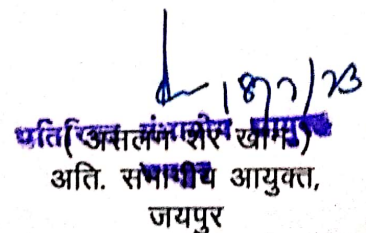 18/7/23
(असलम शेर खान)
अति. संभागीय आयुक्त,
जयपुर